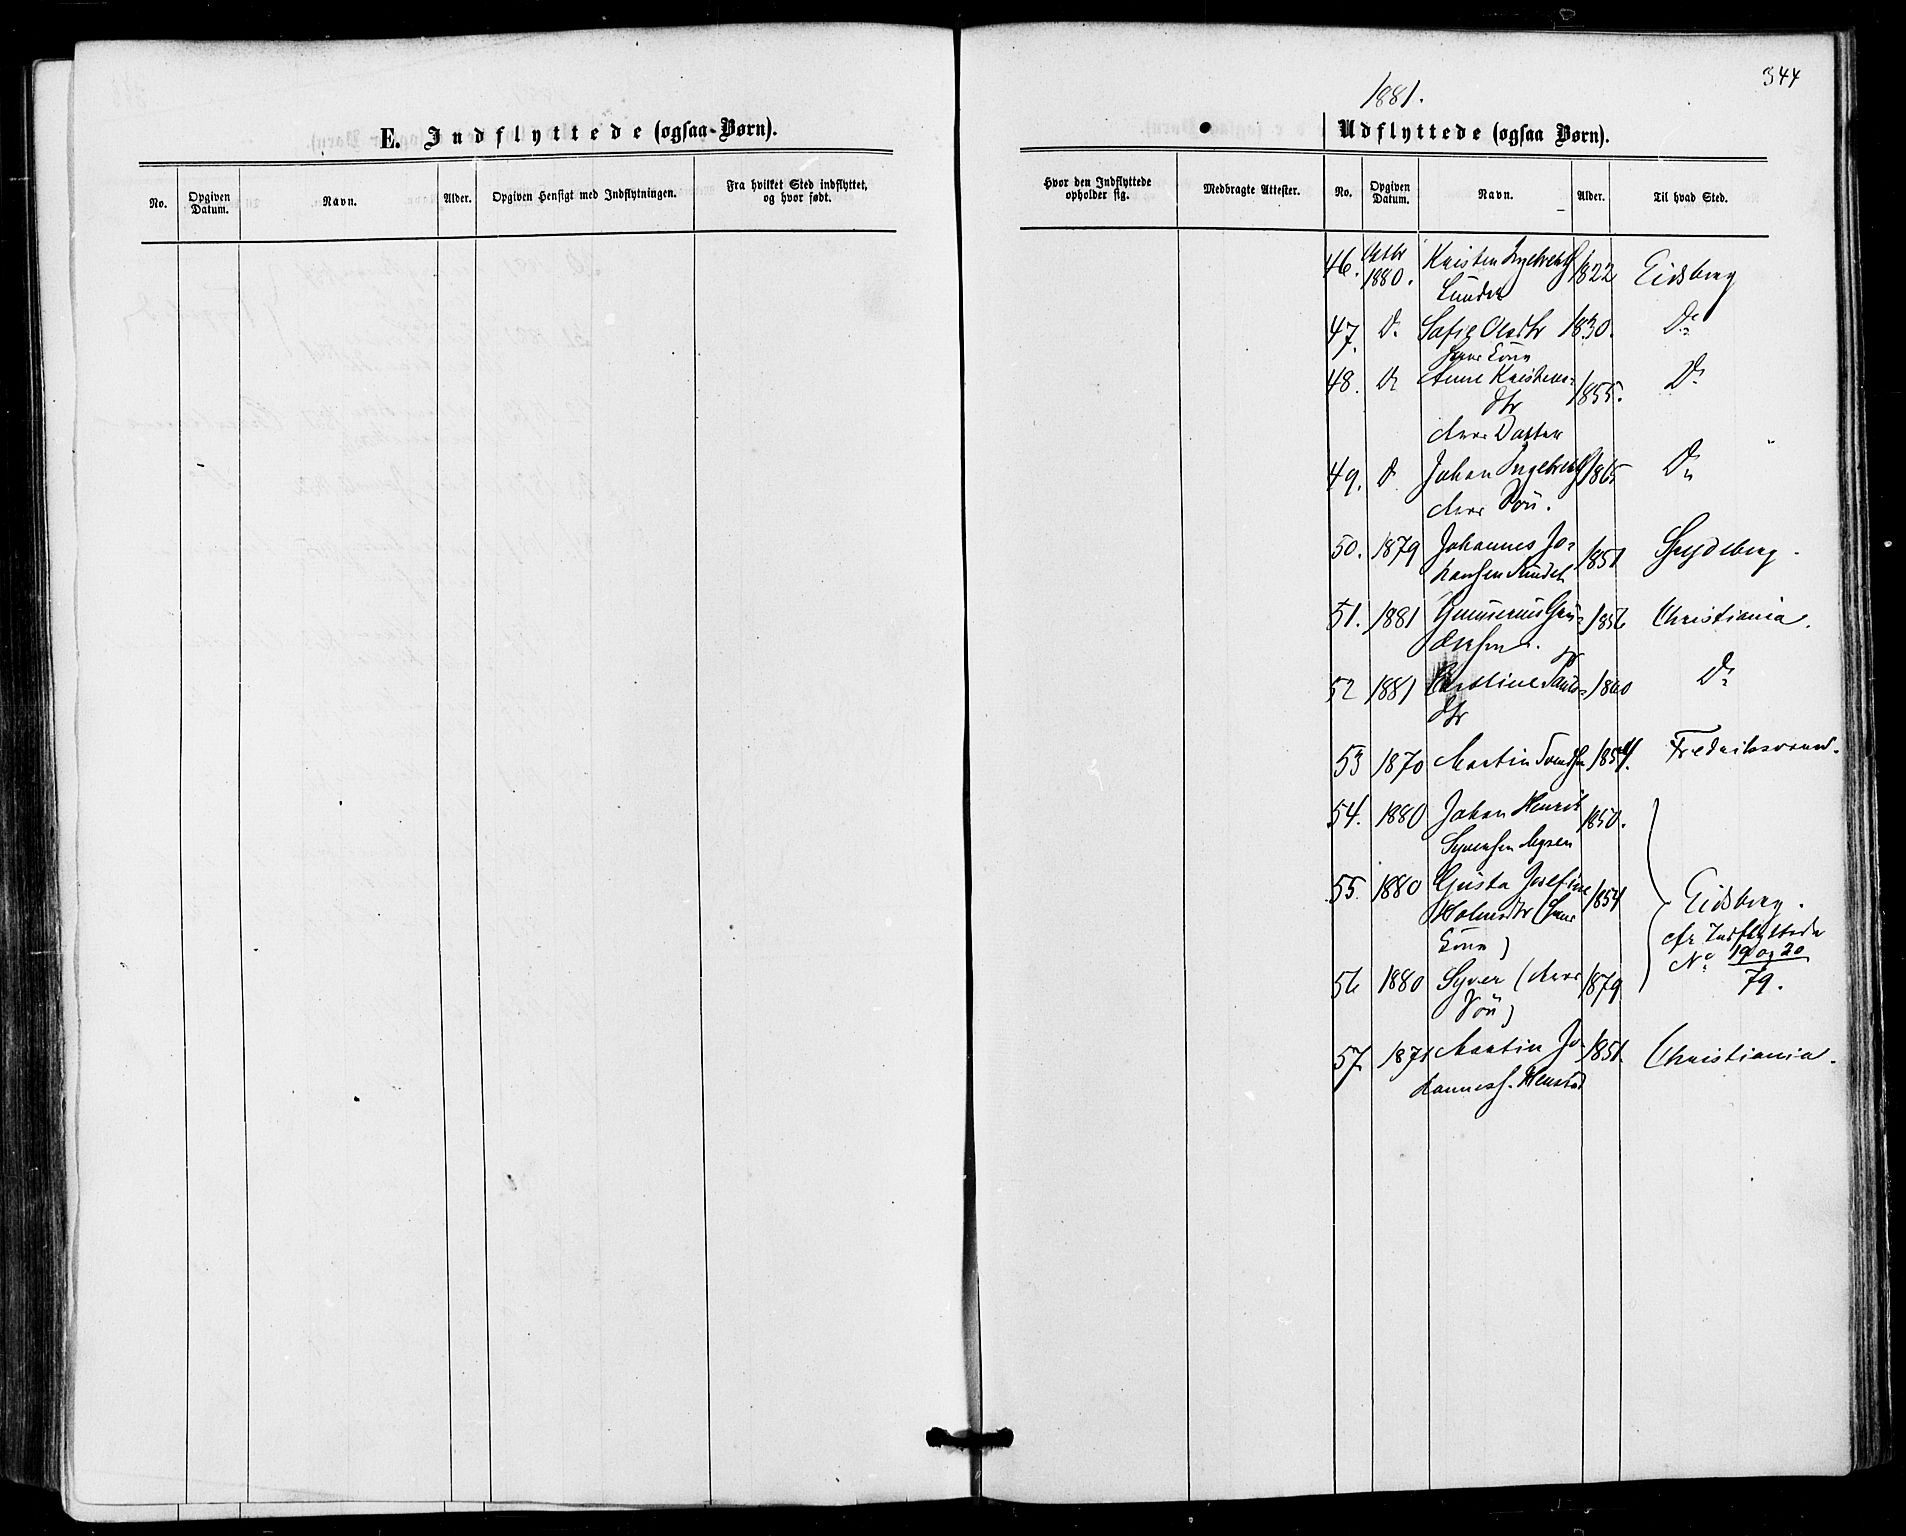 344
1881.
E. Indflyttede (ogsaa Børn).
Udflyttede (ogsaa Børn).
No. Opgiven Datum. Navn. Alder. Opgiven Hensigt med Indflytningen. Fra hvilket Sted indflyttet, og hvor født.
Hvor den Indflyttede opholder sig. Medbragte Attester. No. Opgiven Datum. Navn. Alder. Til hvad Sted.
46. Octbr 1880. Kristen Ingebreths 1822 Eidsberg
47. Do Sofie Olsdtr 1830. Do
hans Kone
48. Do Anne Kristens- 1855. Do
dtr
deres Datter
49. Do Johan Ingebrethss 1865 Do
deres Søn.
50. 1879 Johannes Jo- 1851 Spydeberg.
hansen
51. 1881 Gunnerius 1856 Christiania.
52 1881 Karoline Pauls- 1860 Do
dtr
53 1870 Martin Svends 1854. Fredriksværn.
54. 1880 Johan Henrik 1850.
Syversen Mysen
55. 1880 Gusta Josefine 1854 Eidsberg.
(hans cfr Indflyttede
Kone) No 19 og 20
56 1880 Syver (deres 1879 79.
Søn)
57 1871 Martin Jo- 1851. Christiania.
hanness. Henstad